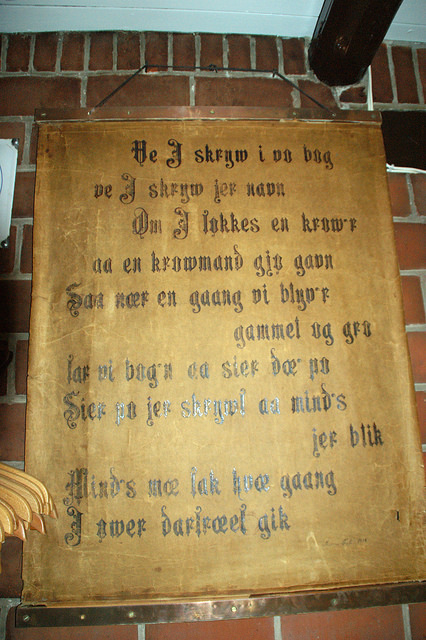 He I skryw i vo bog
ve I skryw jer navn
Om I løkkes en krow'r
aa en krowmand gjø gavn
Saa nær en gaang vi blyv'r
gammel og gro
tar vi bog'n aa sier dæ' po
Sier po jer skrywt aa mind's
jer blik
Mind's mæ tak hvæ gaang
I øwer dørtræet gik